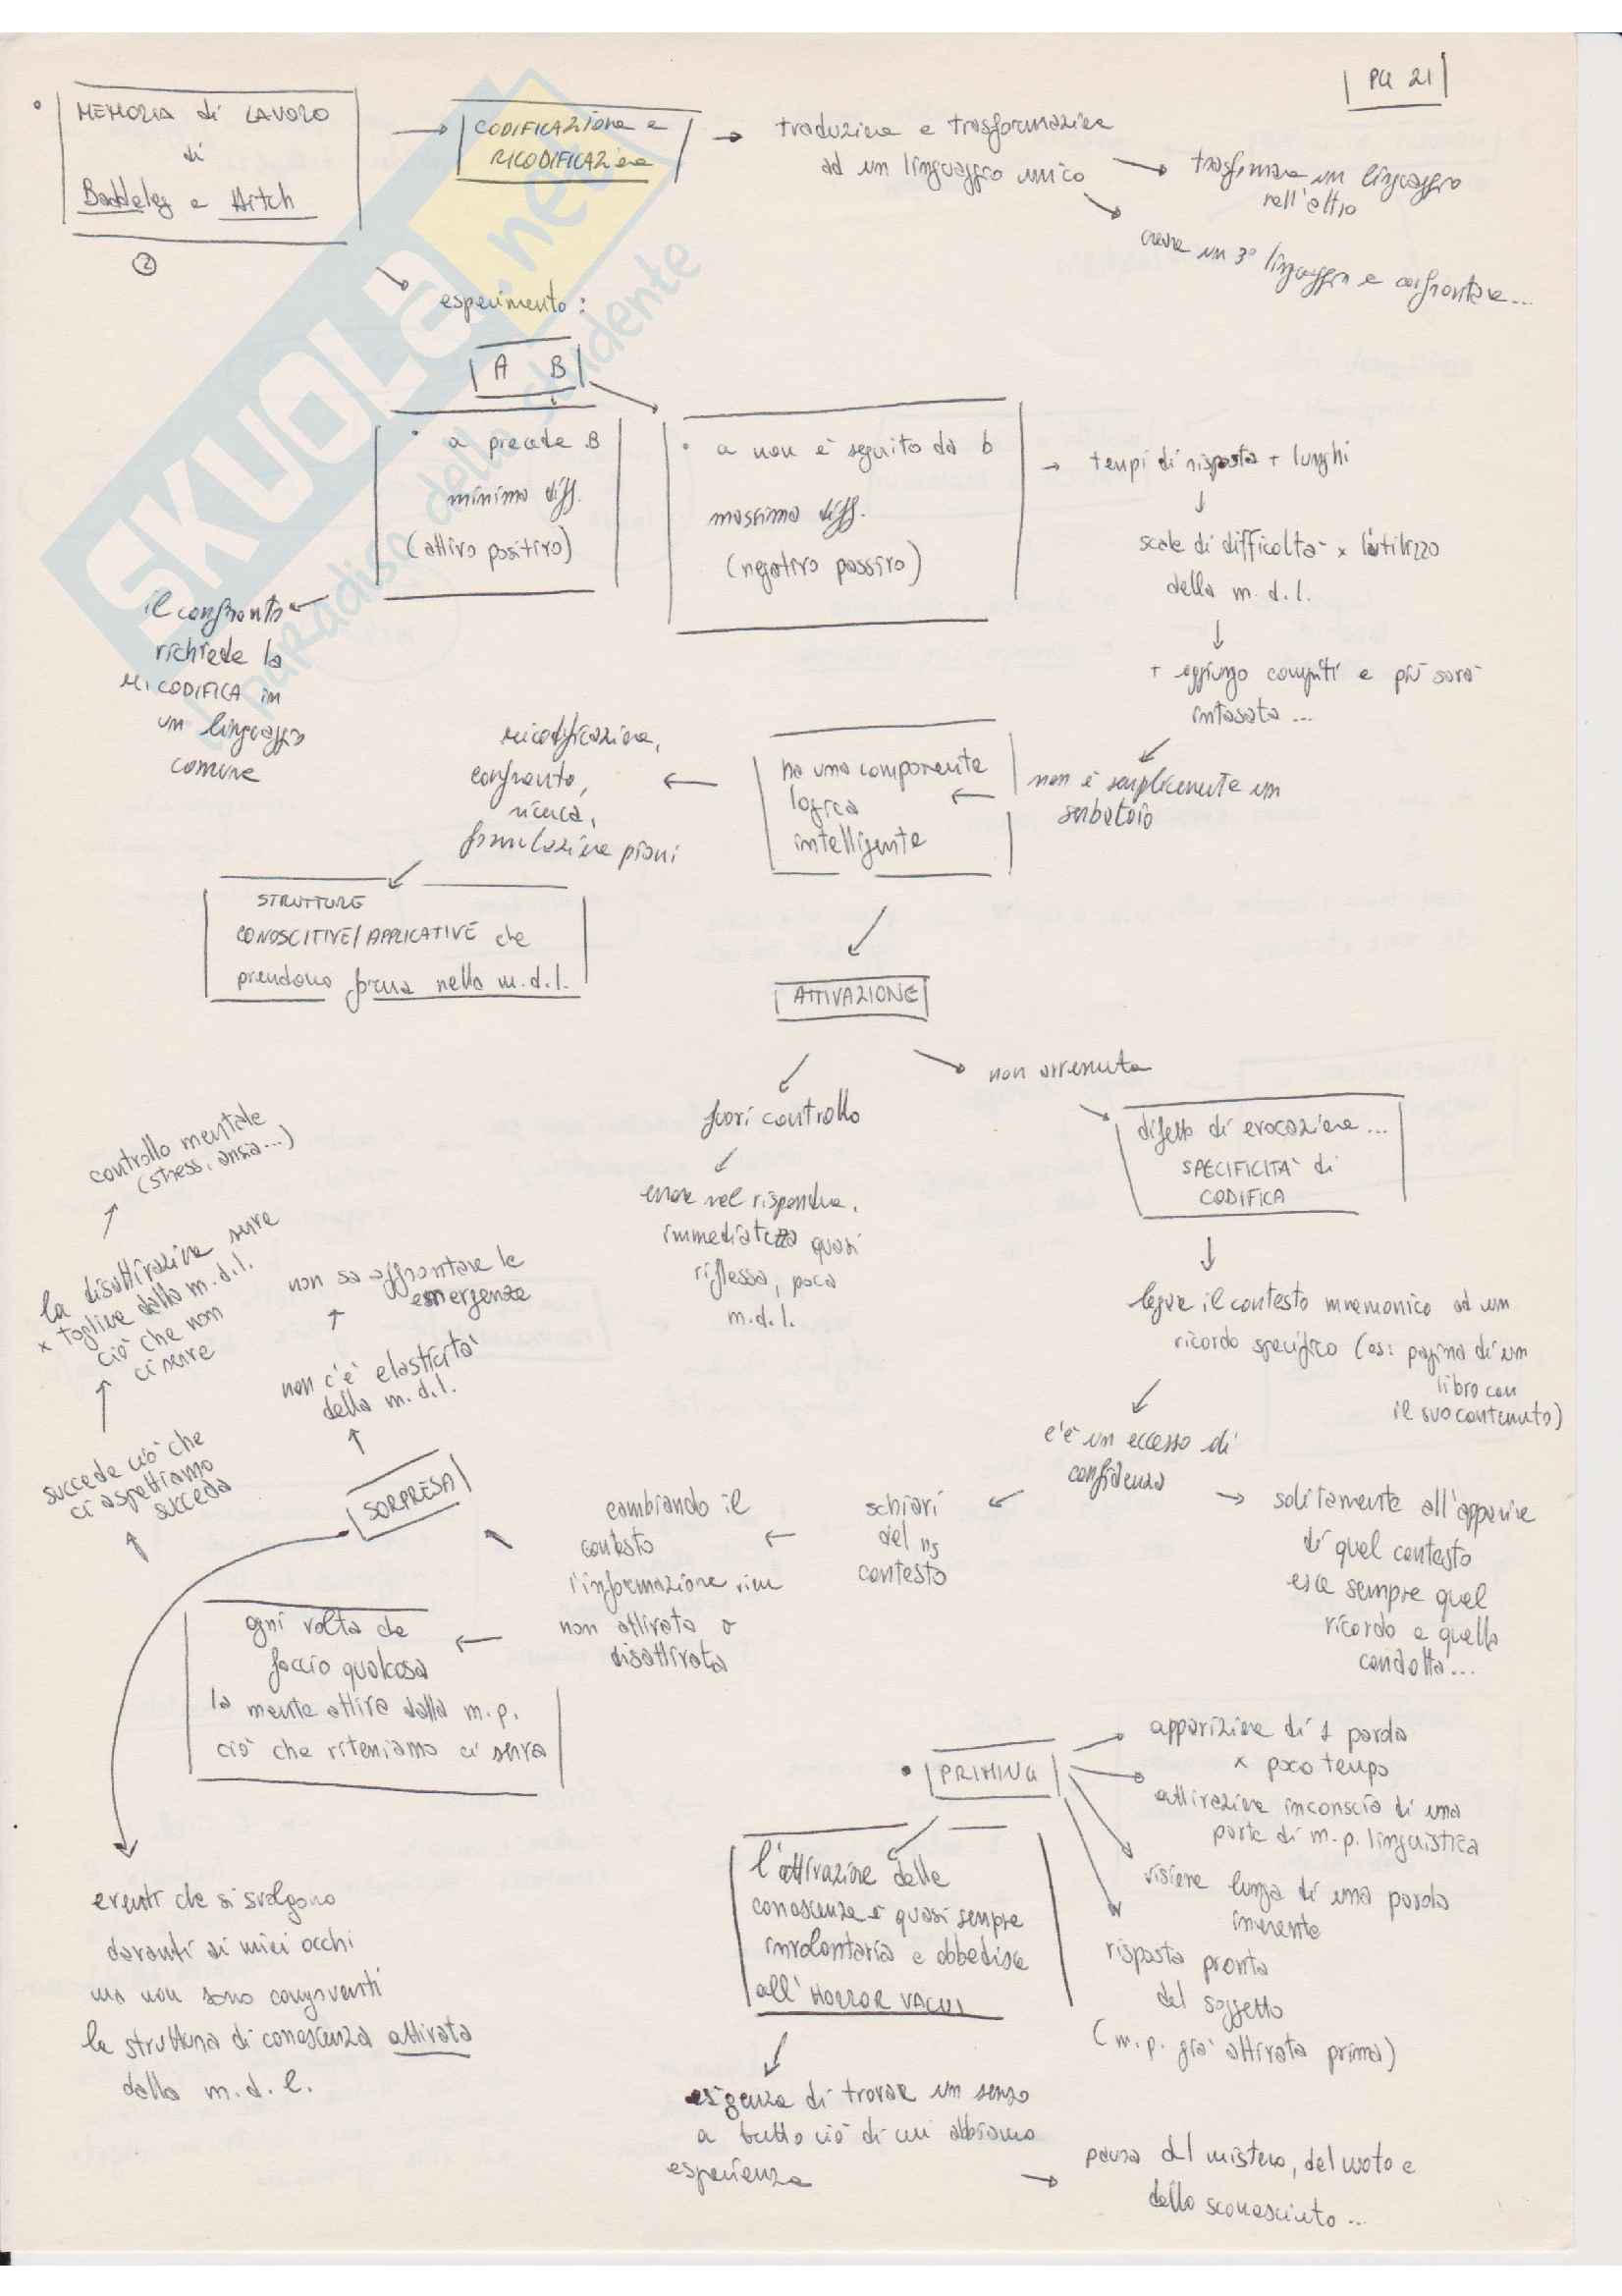 PG 21
MEMORIA di LAVORO
di
Baddeley e Hitch
2
CODIFICAZIONE e
RICODIFICAZIONE
traduzione e trasformazione
ad un linguaggio unico
trasformare un linguaggio
nell'altro
creare un 3° linguaggio e confrontare...
esperimento:
A B
• a precede B
minima diff.
(attivo positivo)
• a non è seguito da b
massima diff.
(negativo passivo)
tempi di risposta + lunghi
scale di difficoltà x l'utilizzo
della m.d.l.
+ aggiungo compiti e più sarà
intasata...
il confronto
richiede la
RICODIFICA in
un linguaggio
comune
non è semplicemente un
serbatoio
ha una componente
logica
intelligente
ricodificazione,
confronto,
ricerca,
formulazione piani
STRUTTURE
CONOSCITIVE/APPLICATIVE che
prendono forma nella m.d.l.
ATTIVAZIONE
fuori controllo
errore nel rispondere,
immediatezza quasi
riflessa, poca
m.d.l.
non avvenuta
difetto di evocazione...
SPECIFICITA' di
CODIFICA
legare il contesto mnemonico ad un
ricordo specifico (es: pagina di un
libro con
il suo contenuto)
c'è un eccesso di
confidenza
solitamente all'apparire
di quel contesto
esce sempre quel
ricordo e quella
condotta...
schiavi
del ns
contesto
cambiando il
contesto
l'informazione viene
non attivata o
disattivata
SORPRESA
non c'è elasticità
della m.d.l.
non sa affrontare le
emergenze
ogni volta che
faccio qualcosa
la mente attiva dalla m.p.
ciò che riteniamo ci serva
succede ciò che
ci aspettiamo
succeda
la disattivazione serve
x togliere dalla m.d.l.
ciò che non
ci serve
controllo mentale
(stress, ansia...)
eventi che si svolgono
davanti ai miei occhi
ma non sono congruenti
la struttura di conoscenza attivata
dalla m.d.l.
• PRIMING
apparizione di 1 parola
x poco tempo
attivazione inconscia di una
parte di m.p. linguistica
visione lunga di una parola
inerente
risposta pronta
del soggetto
(m.p. già attivata prima)
l'attivazione delle
conoscenze è quasi sempre
involontaria e obbedisce
all'HORROR VACUI
esigenza di trovare un senso
a tutto ciò di cui abbiamo
esperienza
paura del mistero, del vuoto e
dello sconosciuto...
SKUOLA.net
paradiso dello studente